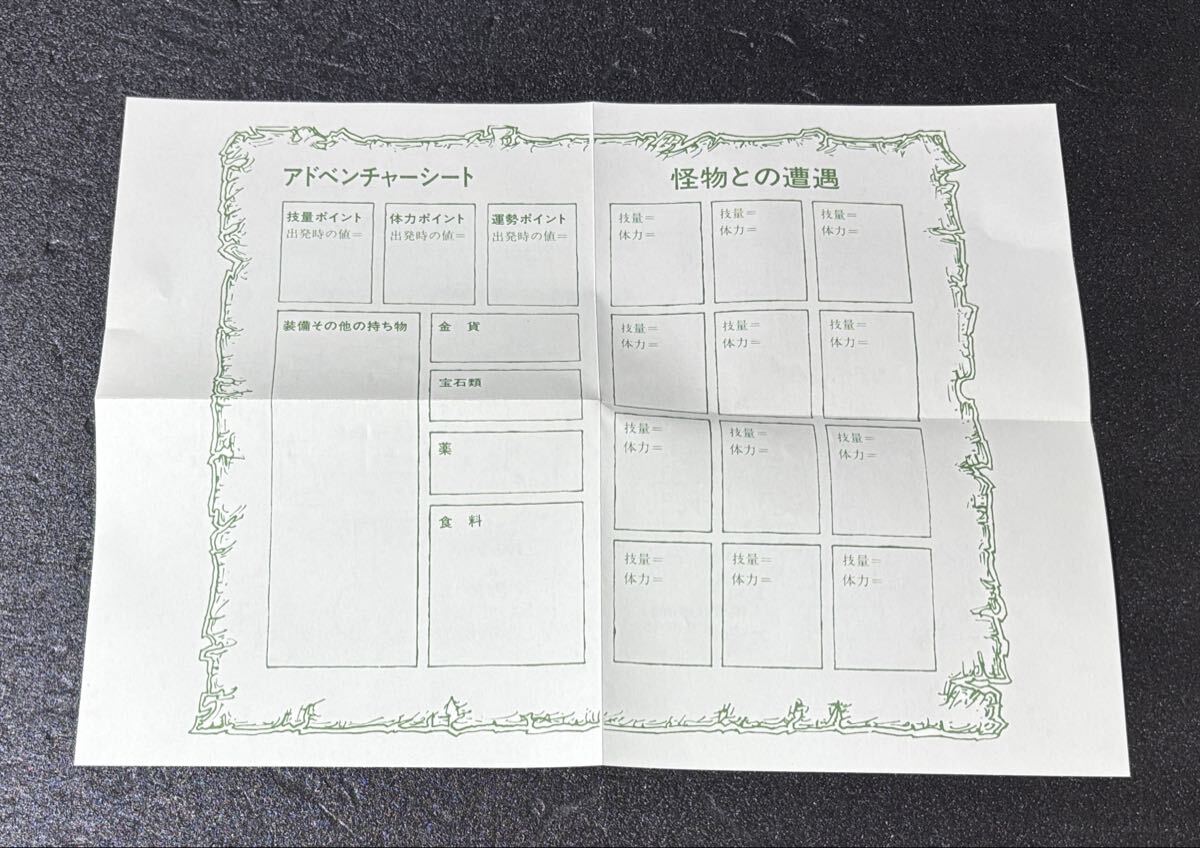 アドベンチャーシート
技量ポイント
出発時の値＝
体力ポイント
出発時の値＝
運勢ポイント
出発時の値＝
装備その他の持ち物
金　貨
宝石類
薬
食　料
怪物との遭遇
技量＝
体力＝
技量＝
体力＝
技量＝
体力＝
技量＝
体力＝
技量＝
体力＝
技量＝
体力＝
技量＝
体力＝
技量＝
体力＝
技量＝
体力＝
技量＝
体力＝
技量＝
体力＝
技量＝
体力＝